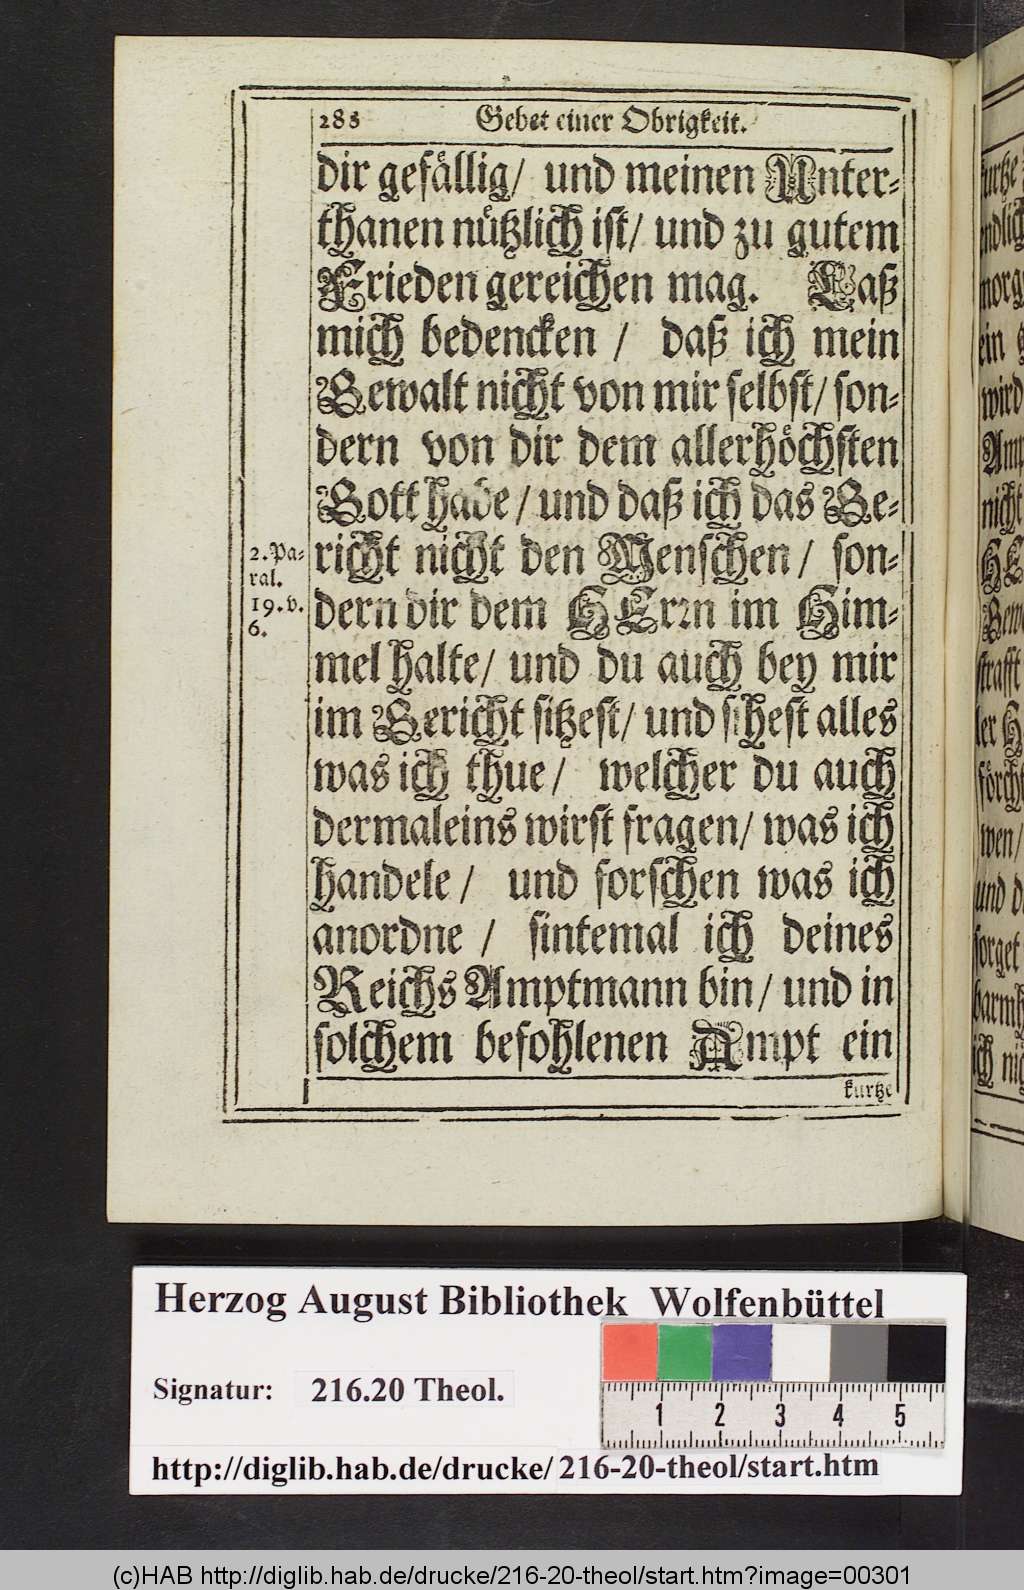 283 Gebet einer Obrigkeit.
dir gefällig/ und meinen Unter-
thanen nützlich ist/ und zu gutem
Frieden gereichen mag. Laß
mich bedencken / daß ich mein
Gewalt nicht von mir selbst/ son-
dern von dir dem allerhöchsten
Gott habe / und daß ich das Ge-
richt nicht den Menschen / son-
dern dir dem HErrn im Him-
mel halte/ und du auch bey mir
im Gericht sitzest/ und sihest alles
was ich thue / welcher du auch
dermaleins wirst fragen/ was ich
handele / und forschen was ich
anordne / sintemal ich deines
Reichs Amptmann bin / und in
solchem befohlenen Ampt ein
kurtze
2. Pa-
ral.
19. v.
6.
kurtze
endlich
morg
ein g
wird
Amp
nicht
HE
Gew
strafft
ler H
förch
wen/
und d
sorget
barmh
ich nic
Herzog August Bibliothek Wolfenbüttel
Signatur: 216.20 Theol.
1 2 3 4 5
http://diglib.hab.de/drucke/216-20-theol/start.htm
(c)HAB http://diglib.hab.de/drucke/216-20-theol/start.htm?image=00301